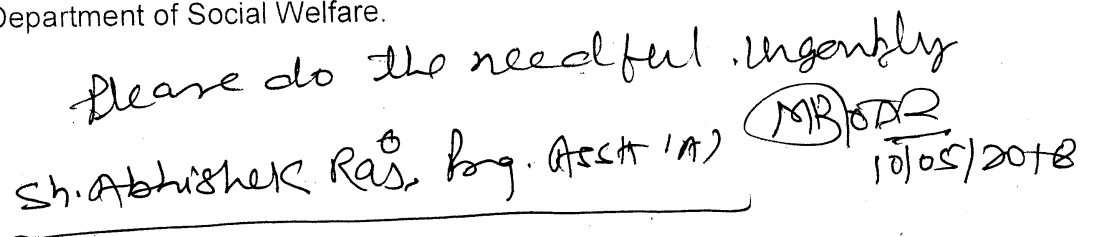 Department of Social Welfare.
Please do the needful urgently
Sh. Abhishek Raj, Prg. Asstt (A)
10/05/2018